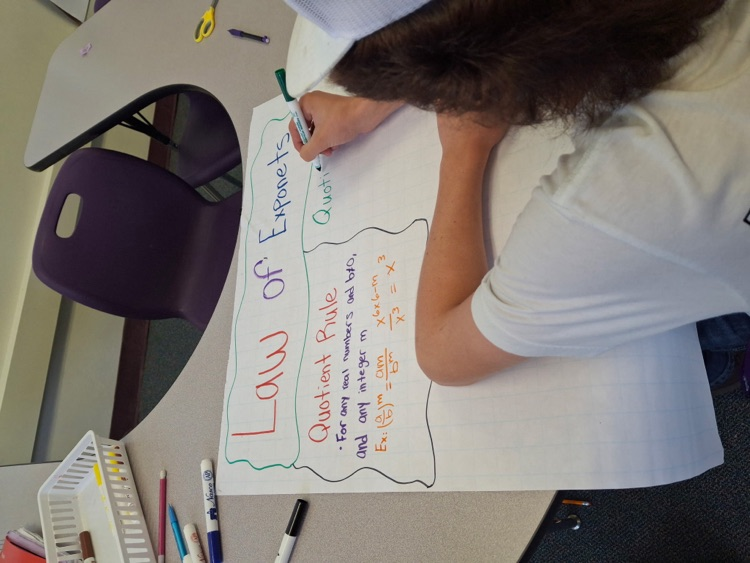 Law of Exponets
Quotient Rule
• For any real numbers and b≠0,
and any integer m
Ex: (a/b)^m = am/bm x6x6-m/x3 = x3
Quoti